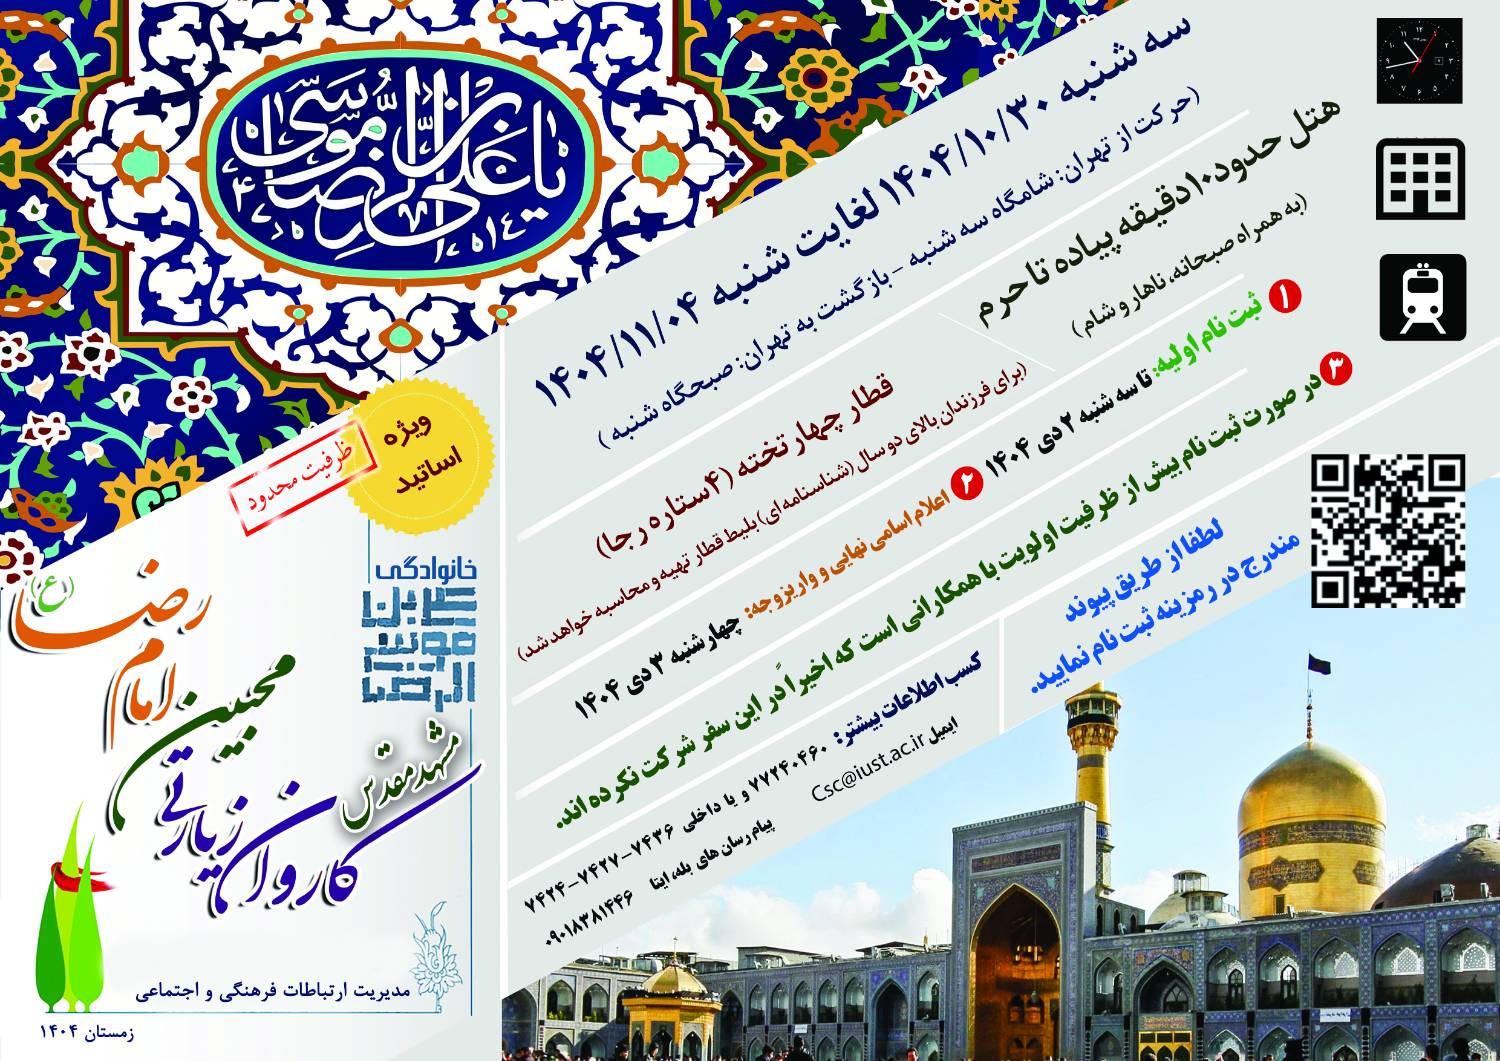 یا علی بن موسی الرضا
سه شنبه ۱۴۰۴/۱۰/۳۰ لغایت شنبه ۱۴۰۴/۱۱/۰۴
(حرکت از تهران: شامگاه سه شنبه - بازگشت به تهران: صبحگاه شنبه)
هتل حدود ۱۰ دقیقه پیاده تا حرم
(به همراه صبحانه، ناهار و شام)
قطار چهار تخته (۴ ستاره رجا)
(برای فرزندان بالای دو سال (شناسنامه ای) بلیط قطار تهیه و محاسبه خواهد شد)
۱ ثبت نام اولیه: تا سه شنبه ۲ دی ۱۴۰۴
۲ اعلام اسامی نهایی و واریز وجه: چهارشنبه ۳ دی ۱۴۰۴
۳ در صورت ثبت نام بیش از ظرفیت اولویت با همکارانی است که اخیراً در این سفر شرکت نکرده اند.
لطفا از طریق پیوند
مندرج در رمزینه ثبت نام نمایید.
کسب اطلاعات بیشتر: ۷۷۲۴۰۴۶۰ و یا داخلی ۷۴۳۶-۷۴۲۷-۷۴۲۴
ایمیل Csc@iust.ac.ir
پیام رسان های بله، ایتا ۰۹۰۱۸۳۸۱۴۴۶
ویژه
اساتید
ظرفیت محدود
خانوادگی
امام رضا (ع)
محبین
کاروان زیارتی
مشهد مقدس
مدیریت ارتباطات فرهنگی و اجتماعی
زمستان ۱۴۰۴